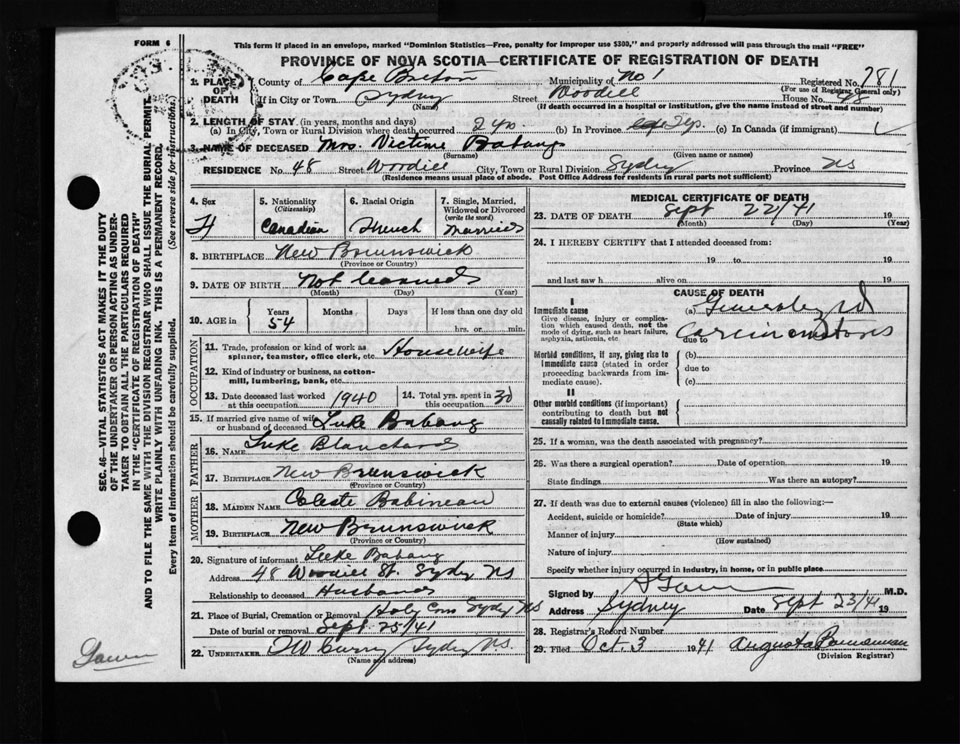 FORM 6
This form if placed in an envelope, marked "Dominion Statistics—Free, penalty for improper use $300," and properly addressed will pass through the mail "FREE"
PROVINCE OF NOVA SCOTIA—CERTIFICATE OF REGISTRATION OF DEATH
1. PLACE OF DEATH
County of Cape Breton Municipality of No 1 Registered No. 781
(For use of Registrar General only)
If in City or Town Sydney Street Woodill House No. 48
(Name) (If death occurred in a hospital or institution, give the name instead of street and number)
2. LENGTH OF STAY (in years, months and days)
(a) In City, Town or Rural Division where death occurred 2 yrs. (b) In Province (c) In Canada (if immigrant)
3. NAME OF DECEASED Mrs. Victime Babang
(Surname) (Given name or names)
RESIDENCE No. 48 Street Woodill City, Town or Rural Division Sydney Province NS
(Residence means usual place of abode. Post Office Address for residents in rural parts not sufficient)
4. Sex
F
5. Nationality (Citizenship)
Canadian
6. Racial Origin
French
7. Single, Married, Widowed or Divorced (write the word)
Married
8. BIRTHPLACE New Brunswick
(Province or Country)
9. DATE OF BIRTH Not learned
(Month) (Day) (Year)
10. AGE in Years Months Days If less than one day old
54 hrs. or min.
OCCUPATION
11. Trade, profession or kind of work as spinner, teamster, office clerk, etc. Housewife
12. Kind of industry or business, as cotton-mill, lumbering, bank, etc.
13. Date deceased last worked at this occupation 1940
14. Total yrs. spent in this occupation 30
15. If married give name of wife or husband of deceased Luke Babang
FATHER
16. NAME Luke Blanchard
17. BIRTHPLACE New Brunswick
(Province or Country)
MOTHER
18. MAIDEN NAME Celeste Babineau
19. BIRTHPLACE New Brunswick
(Province or Country)
20. Signature of informant Luke Babang
Address 48 Woodill St. Sydney NS
Relationship to deceased Husband
21. Place of Burial, Cremation or Removal Holy Cross Sydney NS
Date of burial or removal Sept 25/41
22. UNDERTAKER Curry Sydney NS.
(Name and address)
MEDICAL CERTIFICATE OF DEATH
23. DATE OF DEATH Sept 22/41 19
(Month) (Day) (Year)
24. I HEREBY CERTIFY that I attended deceased from:
19 to 19
and last saw h alive on 19
CAUSE OF DEATH
I
Immediate cause
Give disease, injury or complication which caused death, not the mode of dying, such as heart failure, asphyxia, asthenia, etc.
(a) Generalized
due to Carcinomatosis
Morbid conditions, if any, giving rise to immediate cause (stated in order proceeding backwards from immediate cause).
(b)
due to
(c)
II
Other morbid conditions (if important) contributing to death but not causally related to immediate cause.
25. If a woman, was the death associated with pregnancy?
26. Was there a surgical operation? Date of operation 19
State findings Was there an autopsy?
27. If death was due to external causes (violence) fill in also the following:—
Accident, suicide or homicide? Date of injury 19
(State which)
Manner of injury
(How sustained)
Nature of injury
Specify whether injury occurred in industry, in home, or in public place
Signed by M.D.
Address Sydney Date Sept 23/41 19
28. Registrar's Record Number
29. Filed Oct. 3 1941 Augusta
(Division Registrar)
SEC. 46—VITAL STATISTICS ACT MAKES IT THE DUTY
OF THE UNDERTAKER OR PERSON ACTING AS UNDER-
TAKER TO OBTAIN ALL THE PARTICULARS REQUIRED
IN THE "CERTIFICATE OF REGISTRATION OF DEATH"
AND TO FILE THE SAME WITH THE DIVISION REGISTRAR WHO SHALL ISSUE THE BURIAL PERMIT.
WRITE PLAINLY WITH UNFADING INK. THIS IS A PERMANENT RECORD.
Every item of information should be carefully supplied. (See reverse side for instructions.)